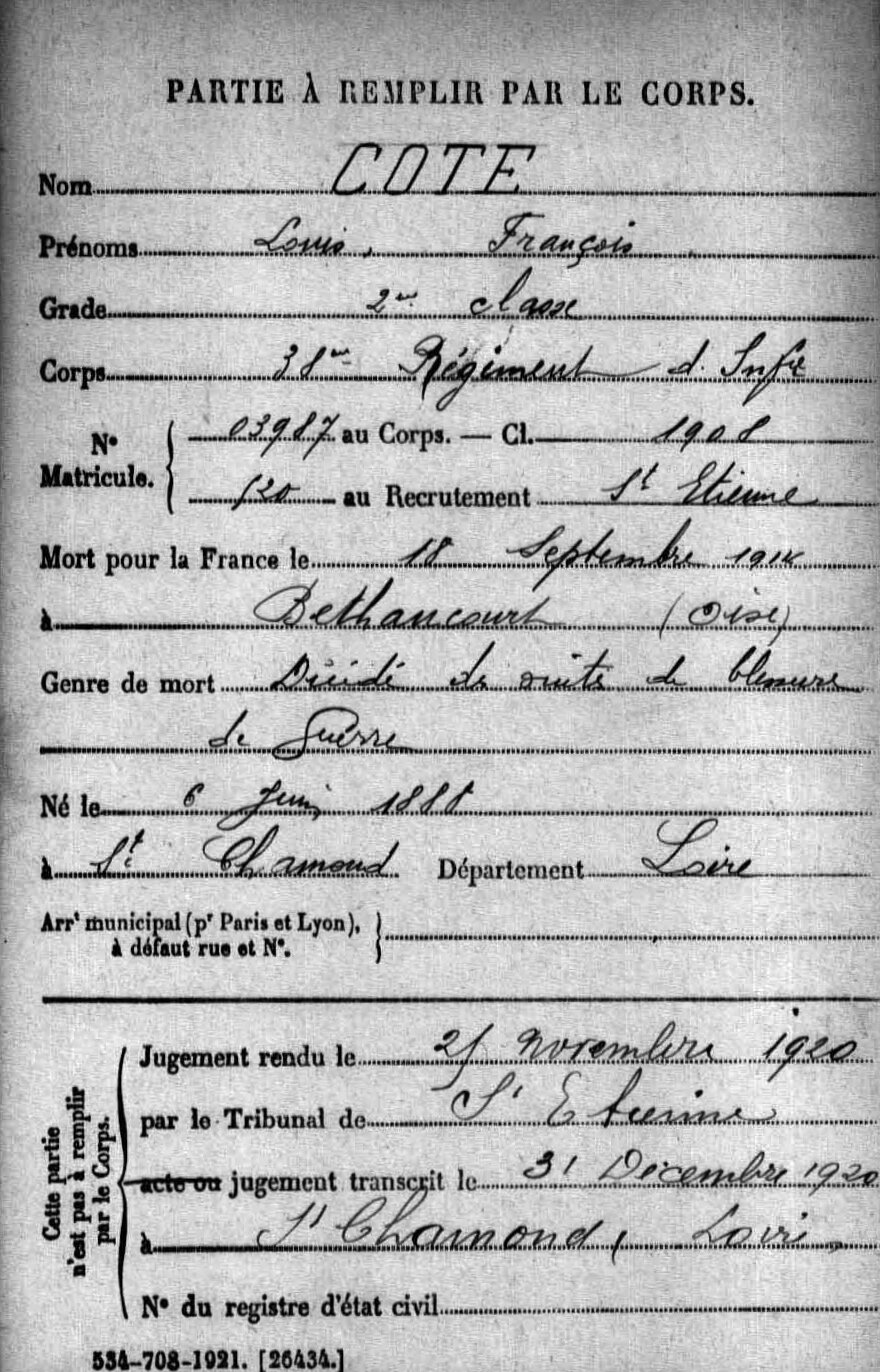 PARTIE À REMPLIR PAR LE CORPS.
Nom COTE
Prénoms Louis, François
Grade 2me classe
Corps 38me Régiment d'Infie
N° Matricule. { 03987 au Corps. — Cl. 1908
520 au Recrutement St Etienne
Mort pour la France le 18 Septembre 1914
à Bethancourt (Oise)
Genre de mort Décédé de suite de blessure
de Guerre
Né le 6 Juin 1888
à St Chamond Département Loire
Arrt municipal (pr Paris et Lyon),
à défaut rue et N°. }
Cette partie n'est pas à remplir par le Corps. {
Jugement rendu le 25 Novembre 1920
par le Tribunal de St Etienne
acte ou jugement transcrit le 31 Décembre 1920
à St Chamond, Loire.
N° du registre d'état civil
534-708-1921. [26434.]